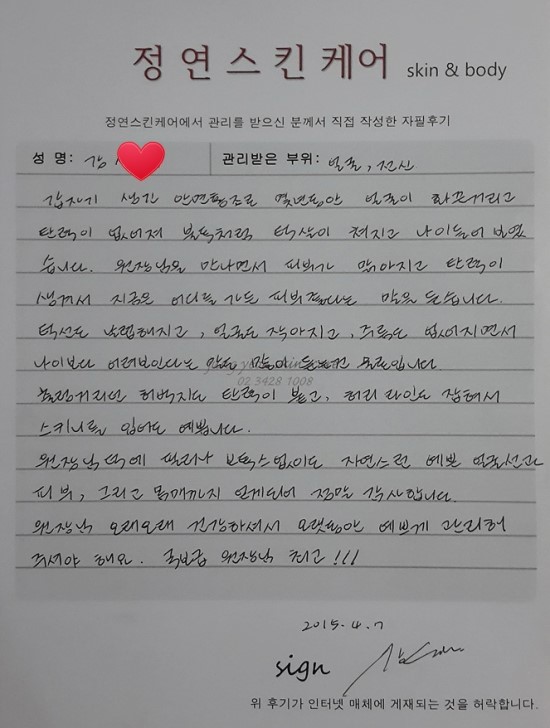 정연스킨케어 skin & body
정연스킨케어에서 관리를 받으신 분께서 직접 작성한 자필후기
성 명: 강 관리받은 부위: 얼굴, 전신
갑자기 생긴 안면홍조로 몇년동안 얼굴이 화끈거리고
탄력이 없어져 불독처럼 턱살이 쳐지고 나이들어 보였
습니다. 원장님을 만나면서 피부가 맑아지고 탄력이
생겨서 지금은 어디를 가든 피부좋다는 말을 듣습니다.
턱선도 날렵해지고, 얼굴도 작아지고, 주름도 없어지면서
나이보다 어려보인다는 말도 많이 듣는건 물론입니다
출렁거리던 허벅지도 탄력이 붙고, 허리 라인도 잡혀서
스키니를 입어도 예쁩니다.
원장님덕에 필러나 보톡스없이도 자연스런 예쁜 얼굴선과
피부, 그리고 몸매까지 얻게되어 정말 감사합니다.
원장님 오래오래 건강하셔서 오랫동안 예쁘게 관리해
주셔야 해요. 국보급 원장님 최고!!!
02 3428 1008
2015.4.7
sign
위 후기가 인터넷 매체에 게재되는 것을 허락합니다.